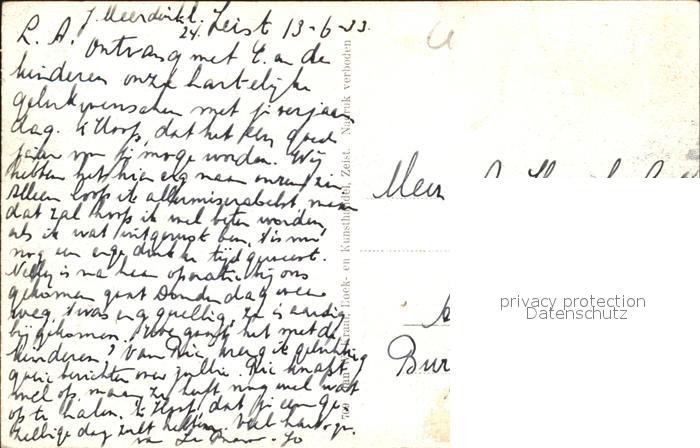 J. Meerdinkl.
24. Zeist 13-6-33.
L. A. Ontvang met E. en de
kinderen onze hartelijke
gelukwenschen met je verjaar
dag. k Hoop, dat het een goed
jaar voor je moge worden. Wij
hebben het hier erg naar onzen zin
alleen loop ik allermiserabelst, maar
dat zal hoop ik wel beter worden,
als ik wat uitgerust ben, t is mij
nog een erge drukke tijd geweest.
Nelly is na haar operatie bij ons
gekomen gaat Donderdag weer
weg, t was erg gezellig, ze is aardig
bijgekomen. Hoe gaat het met de
kinderen? Van Rie kreeg ik gelukkig
goede berichten over jullie. Rie knapt
wel op, maar ze heeft nog wel wat
op te halen. k Hoop, dat je een ge-
zellige dag zult hebben. Veel hart. gr.
van Jo
Boek- en Kunsthandel, Zeist. Nadruk verboden
Meer
Bur
privacy protection
Datenschutz